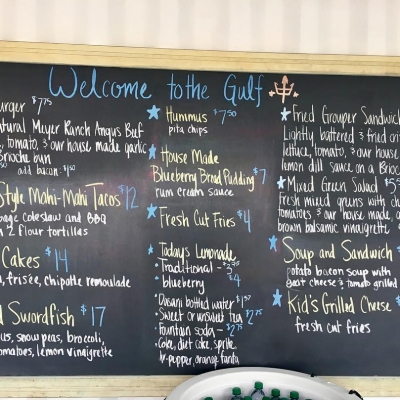 Welcome to the Gulf
urger $7.75
atural Meyer Ranch Angus Beef
, tomato, & our house made garlic
Brioche bun
add bacon $1.50
Style Mahi-Mahi Tacos $12
bage coleslaw and BBQ
n 2 flour tortillas
Cakes $14
, frisée, chipotle remoulade
d Swordfish $17
us, snow peas, broccoli,
omatoes, lemon vinaigrette
Hummus $7.50
pita chips
House Made
Blueberry Bread Pudding $7
rum cream sauce
Fresh Cut Fries $4
Todays Lemonade
Traditional -
blueberry $4
Dasani bottled water $1.50
Sweet or unsweet tea $2.75
Fountain soda - $2.75
Coke, diet coke, sprite
dr. pepper, orange fanta
Fried Grouper Sandwich
Lightly battered & fried
lettuce, tomato, & our house
lemon dill sauce on a Brioche
Mixed Green Salad
fresh mixed greens with
tomatoes & our house made,
brown balsamic vinaigrette
Soup and Sandwich $
potato bacon soup with
goat cheese & tomato grilled
Kid's Grilled Cheese $
fresh cut fries